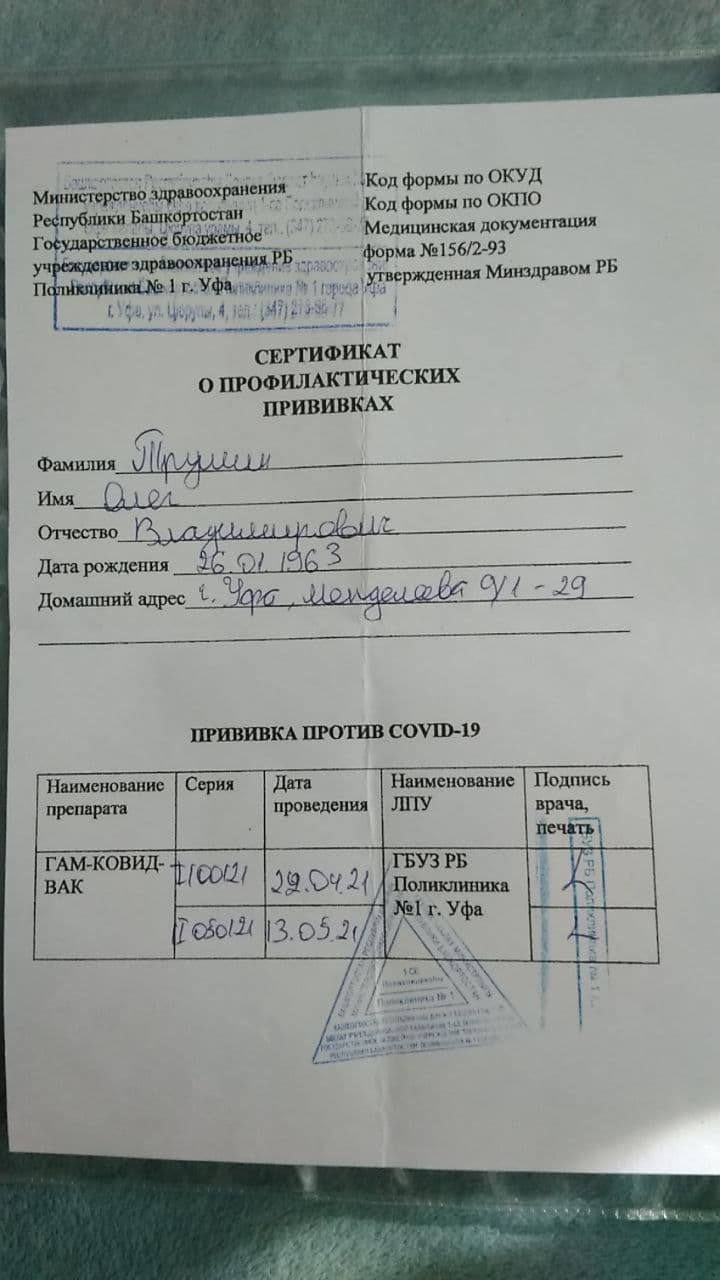 Министерство здравоохранения
Республики Башкортостан
Государственное бюджетное
учреждение здравоохранения РБ
Поликлиника № 1 г. Уфа
г. Уфа, ул. Цюрупы, 4, тел.:
Код формы по ОКУД
Код формы по ОКПО
Медицинская документация
форма №156/2-93
Утвержденная Минздравом РБ
СЕРТИФИКАТ
О ПРОФИЛАКТИЧЕСКИХ
ПРИВИВКАХ
Фамилия
Имя Олег
Отчество Владимирович
Дата рождения 26.01.1963
Домашний адрес г. Уфа, Менделеева 9/1-29
ПРИВИВКА ПРОТИВ COVID-19
Наименование препарата
Серия
Дата проведения
Наименование ЛПУ
Подпись врача, печать
ГАМ-КОВИД-ВАК
I100121
22.04.21
ГБУЗ РБ
Поликлиника
№1 г. Уфа
I050121
13.05.21
Поликлиника № 1